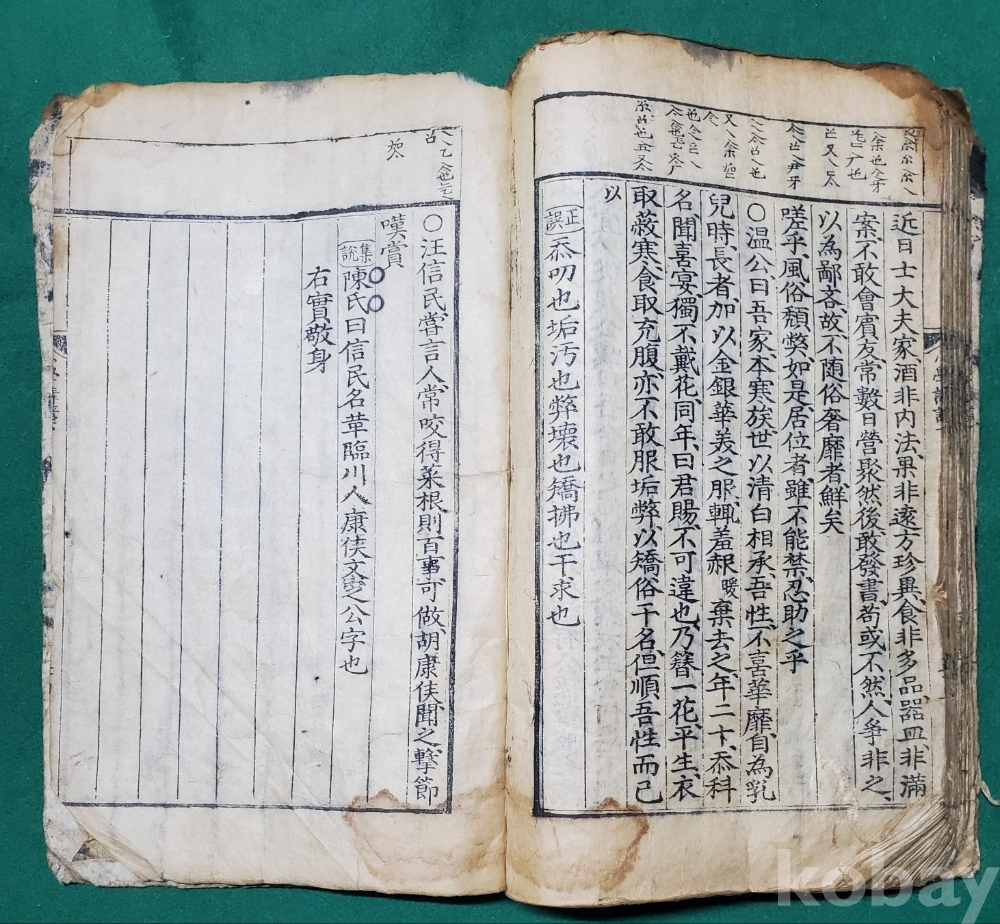 近日士大夫家酒非內法果非遠方珍異食非多品器皿非滿
案不敢會賓友常數日營聚然後敢發書苟或不然人爭非之
以為鄙吝故不隨俗奢靡者鮮矣
嗟乎風俗頹弊如是居位者雖不能禁忍助之乎
○溫公曰吾家本寒族世以清白相承吾性不喜華靡自為乳
兒時長者加以金銀華美之服輒羞赧棄去之年二十忝科
名聞喜宴獨不戴花同年曰君賜不可違也乃簪一花平生衣
取蔽寒食取充腹亦不敢服垢弊以矯俗干名但順吾性而已
正誤 忝叨也垢污也弊壞也矯拂也干求也
○汪信民嘗言人常咬得菜根則百事可做胡康侯聞之擊節
嘆賞
集說 陳氏曰信民名革臨川人康侯文㝎公字也
右實敬身
kobay